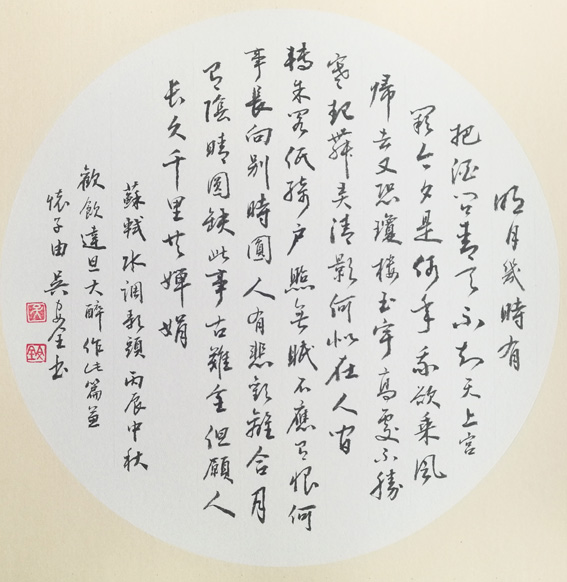 明月幾時有
把酒问青天不知天上宮
闕今夕是何年我欲乘风
歸去又恐瓊樓玉宇高處不勝
寒起舞弄清影何似在人间
轉朱阁低綺户照无眠不應有恨何
事長向别時圓人有悲歡離合月
有陰晴圆缺此事古難全但願人
长久千里共嬋娟
蘇軾水调歌頭 丙辰中秋
歡飲達旦大醉作此篇兼
懷子由 吴全书